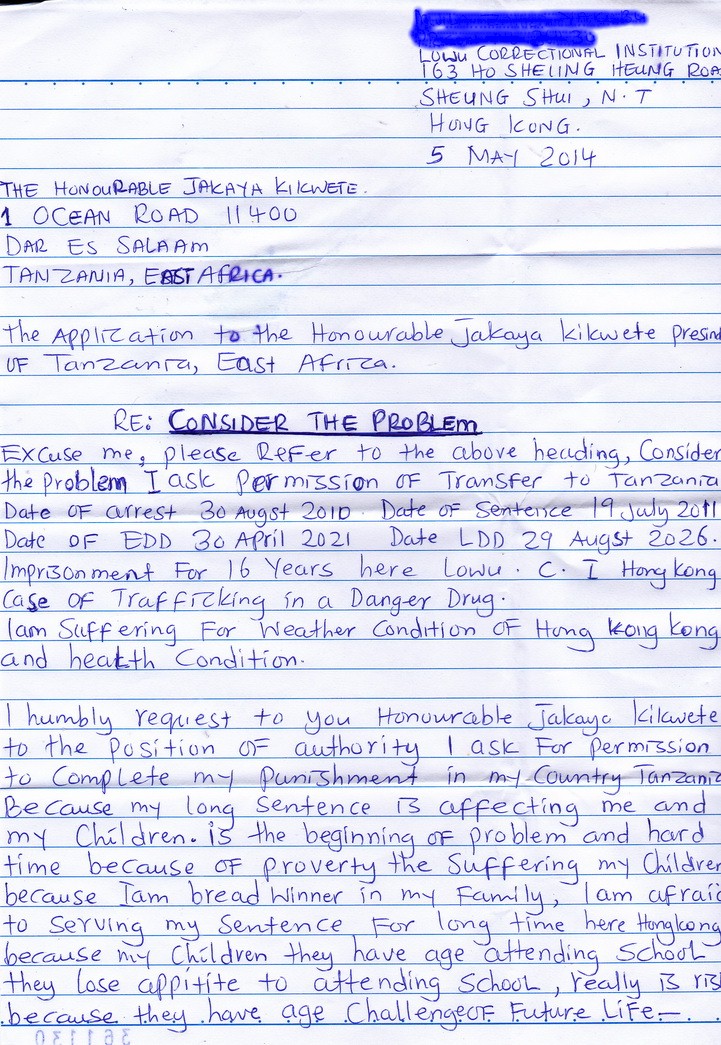 LOWU CORRECTIONAL INSTITUTION
163 HO SHEUNG HEUNG ROA
SHEUNG SHUI, N.T
HONG KONG.
5 MAY 2014
THE HONOURABLE JAKAYA KIKWETE.
1 OCEAN ROAD 11400
DAR ES SALAAM
TANZANIA, EAST AFRICA.
the Application to the Honourable Jakaya kikwete presind
OF Tanzania, East Africa.
RE: CONSIDER THE PROBLEM
Excuse me, please Refer to the above heading, Consider
the problem I ask permission OF Transfer to Tanzania
Date OF arrest 30 Augst 2010. Date OF Sentence 19 July 2011
Date OF EDD 30 April 2021 Date LDD 29 Augst 2026.
Imprisonment For 16 Years here Lowu. C. I Hong kong
Case OF Trafficking in a Danger Drug.
Iam Suffering For Weather Condition OF Hong kong kong
and health Condition.
I humbly request to you Honourable Jakaya kikwete
to the position OF authority I ask For permission
to Complete my punishment in my Country Tanzania
Because my long Sentence is affecting me and
my Children. is the beginning OF problem and hard
time because OF proverty the Suffering my Children
because Iam bread Winner in my Family, Iam afraid
to Serving my Sentence For long time here Hongkong
because my Children they have age attending School
they lose appitite to attending School, really is ris
because they have age Challenge OF Future Life—.
361130